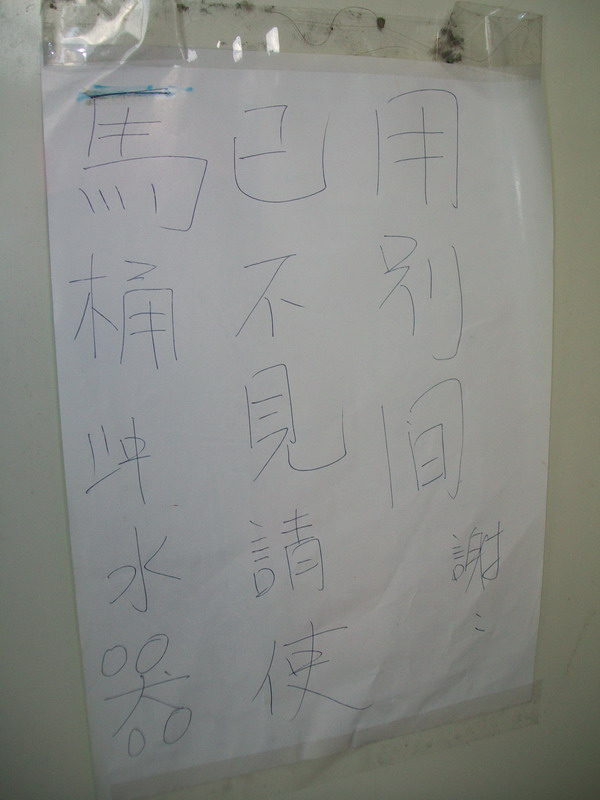 馬桶冲水器
已不見請使
用別間
謝〻